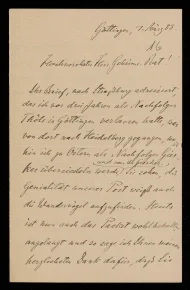 Göttingen, 1. März 83
16
Hochverehrter Herr Geheime Rat!
Ihr Brief, nach Straßburg adressiert,
das ich vor drei Jahren als Nachfolger
in Göttingen verlassen hatte, war
von dort nach Heidelberg gegangen, wo
hin ich zu Ostern als Nachfolger
übersiedeln werde! Sie sehen, die
Genialität unserer Post weiß auch
die Wandervögel aufzufinden. Heute
ist nun auch das Packet wohlbehalten
angelangt und so sage ich Ihnen meinen
herzlichsten Dank dafür, daß Sie